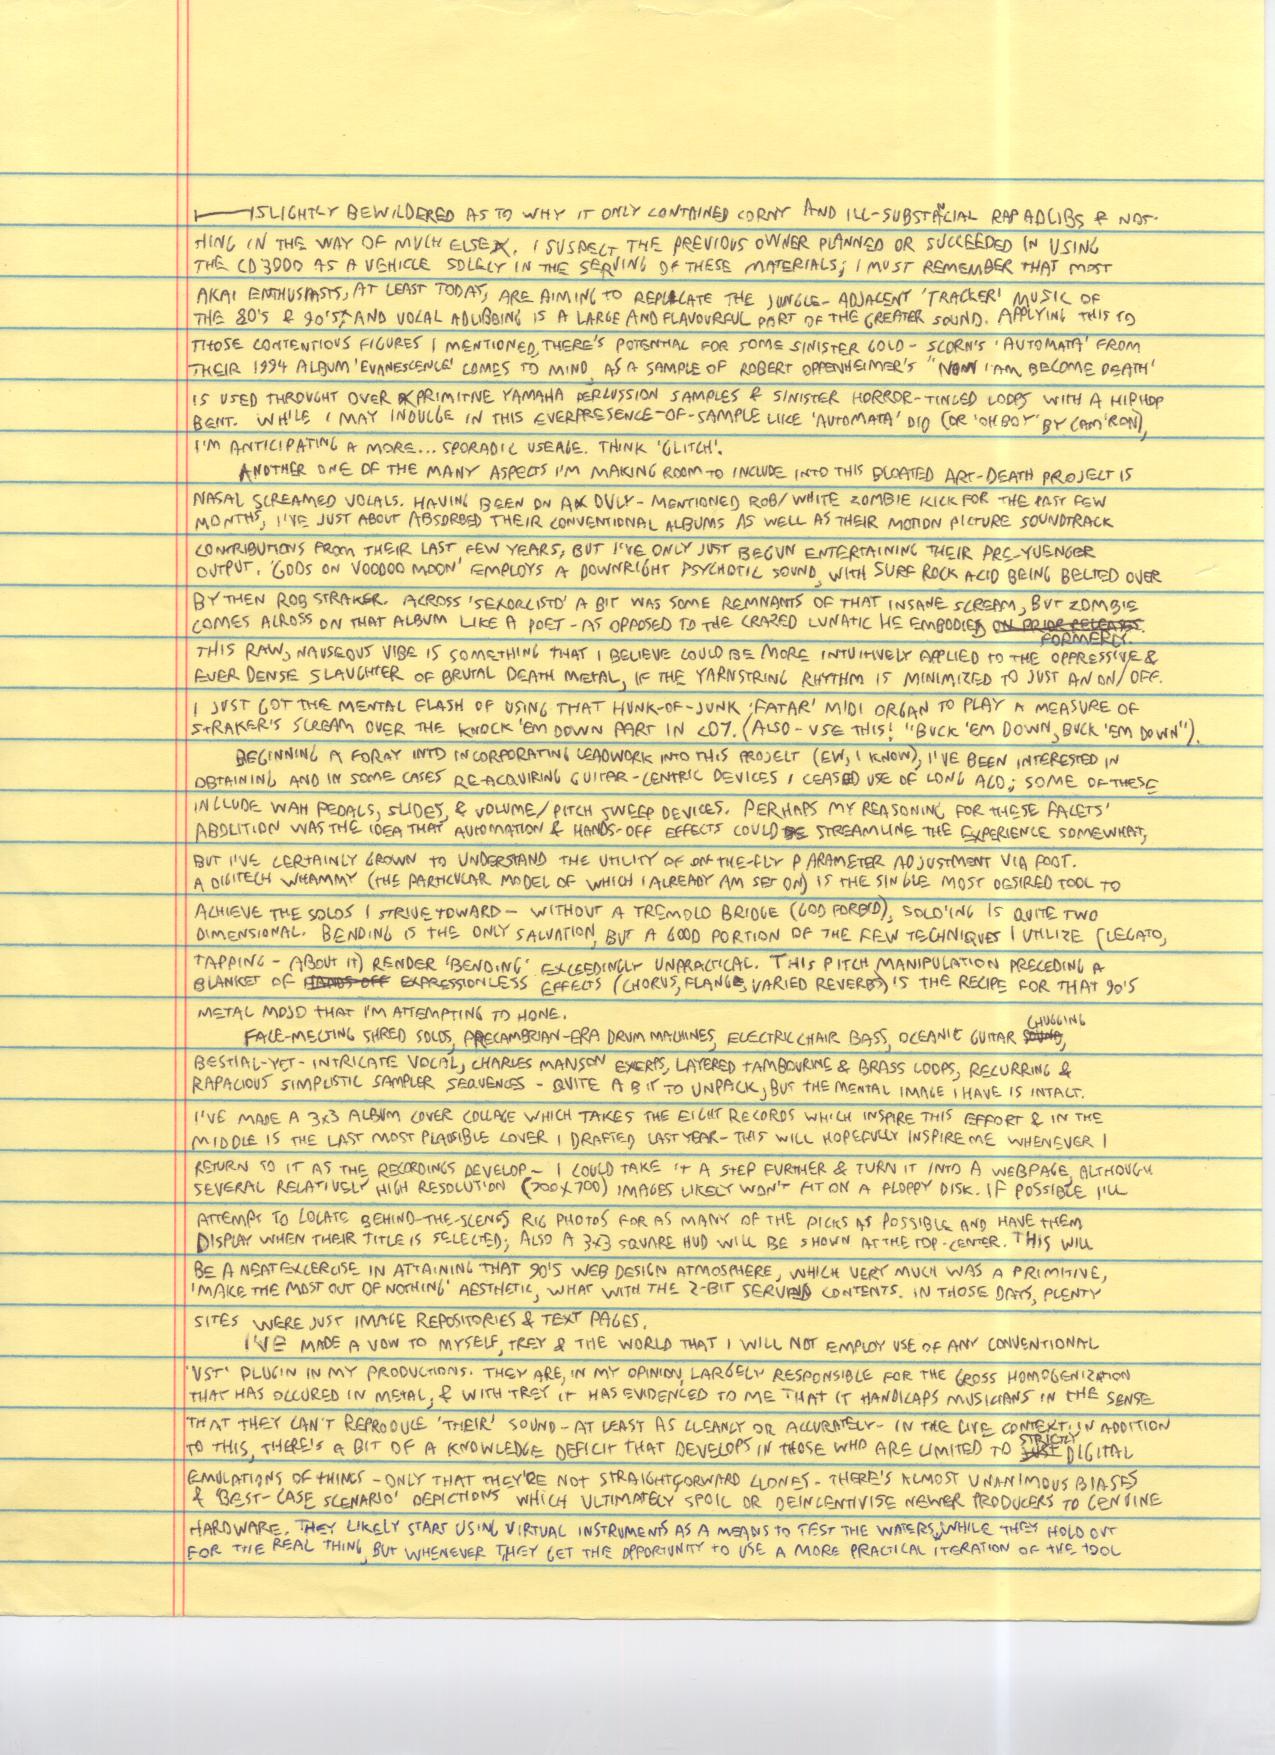 SLIGHTLY BEWILDERED AS TO WHY IT ONLY CONTAINED CORNY AND ILL-SUBSTANCIAL RAP ADLIBS & NOT-
HING IN THE WAY OF MUCH ELSE. I SUSPECT THE PREVIOUS OWNER PLANNED OR SUCCEEDED IN USING
THE CD3000 AS A VEHICLE SOLELY IN THE SERVING OF THESE MATERIALS; I MUST REMEMBER THAT MOST
AKAI ENTHUSIASTS, AT LEAST TODAY, ARE AIMING TO REPLICATE THE JUNGLE-ADJACENT 'TRACKER' MUSIC OF
THE 80'S & 90'S, AND VOCAL ADLIBBING IS A LARGE AND FLAVOURFUL PART OF THE GREATER SOUND. APPLYING THIS TO
THOSE CONTENTIOUS FIGURES I MENTIONED, THERE'S POTENTIAL FOR SOME SINISTER GOLD - SCORN'S 'AUTOMATA' FROM
THEIR 1994 ALBUM 'EVANESCENCE' COMES TO MIND, AS A SAMPLE OF ROBERT OPPENHEIMER'S "NOW I AM BECOME DEATH'
IS USED THROUGHT OVER PRIMITIVE YAMAHA PERCUSSION SAMPLES & SINISTER HORROR-TINGED LOOPS WITH A HIPHOP
BENT. WHILE I MAY INDULGE IN THIS EVERPRESENCE-OF-SAMPLE LIKE 'AUTOMATA' DID (OR 'OH BOY' BY CAM'RON),
I'M ANTICIPATING A MORE... SPORADIC USEAGE. THINK 'GLITCH'.
ANOTHER ONE OF THE MANY ASPECTS I'M MAKING ROOM TO INCLUDE INTO THIS BLOATED ART-DEATH PROJECT IS
NASAL SCREAMED VOCALS. HAVING BEEN ON A DULY-MENTIONED ROB/WHITE ZOMBIE KICK FOR THE PAST FEW
MONTHS, I'VE JUST ABOUT ABSORBED THEIR CONVENTIONAL ALBUMS AS WELL AS THEIR MOTION PICTURE SOUNDTRACK
CONTRIBUTIONS FROM THEIR LAST FEW YEARS, BUT I'VE ONLY JUST BEGUN ENTERTAINING THEIR PRE-YUENGER
OUTPUT. 'GODS ON VOODOO MOON' EMPLOYS A DOWNRIGHT PSYCHOTIC SOUND, WITH SURF ROCK ACID BEING BELTED OVER
BY THEN ROB STRAKER. ACROSS 'SEXORCISTO' A BIT WAS SOME REMNANTS OF THAT INSANE SCREAM, BUT ZOMBIE
COMES ACROSS ON THAT ALBUM LIKE A POET - AS OPPOSED TO THE CRAZED LUNATIC HE EMBODIED ON PRIOR RELEASES. FORMERLY.
THIS RAW, NAUSEOUS VIBE IS SOMETHING THAT I BELIEVE COULD BE MORE INTUITIVELY APPLIED TO THE OPPRESSIVE &
EVER DENSE SLAUGHTER OF BRUTAL DEATH METAL, IF THE YARNSTRING RHYTHM IS MINIMIZED TO JUST AN ON/OFF.
I JUST GOT THE MENTAL FLASH OF USING THAT HUNK-OF-JUNK 'FATAR' MIDI ORGAN TO PLAY A MEASURE OF
STRAKER'S SCREAM OVER THE KNOCK 'EM DOWN PART IN <07. (ALSO - USE THIS! "BUCK 'EM DOWN, BUCK 'EM DOWN").
BEGINNING A FORAY INTO INCORPORATING LEADWORK INTO THIS PROJECT (EW, I KNOW), I'VE BEEN INTERESTED IN
OBTAINING AND IN SOME CASES RE-ACQUIRING GUITAR-CENTRIC DEVICES I CEASED USE OF LONG AGO; SOME OF THESE
INCLUDE WAH PEDALS, SLIDES, & VOLUME/PITCH SWEEP DEVICES. PERHAPS MY REASONING FOR THESE FACETS'
ABOLITION WAS THE IDEA THAT AUTOMATION & HANDS-OFF EFFECTS COULD STREAMLINE THE EXPERIENCE SOMEWHAT,
BUT I'VE CERTAINLY GROWN TO UNDERSTAND THE UTILITY OF ON-THE-FLY PARAMETER ADJUSTMENT VIA FOOT.
A DIGITECH WHAMMY (THE PARTICULAR MODEL OF WHICH I ALREADY AM SET ON) IS THE SINGLE MOST DESIRED TOOL TO
ACHIEVE THE SOLOS I STRIVE TOWARD - WITHOUT A TREMOLO BRIDGE (GOD FORBID), SOLO'ING IS QUITE TWO
DIMENSIONAL. BENDING IS THE ONLY SALVATION, BUT A GOOD PORTION OF THE FEW TECHNIQUES I UTILIZE (LEGATO,
TAPPING - ABOUT IT) RENDER 'BENDING' EXCEEDINGLY UNPRACTICAL. THIS PITCH MANIPULATION PRECEDING A
BLANKET OF HANDS-OFF EXPRESSIONLESS EFFECTS (CHORUS, FLANGE, VARIED REVERBS) IS THE RECIPE FOR THAT 90'S
METAL MOJO THAT I'M ATTEMPTING TO HONE.
FACE-MELTING SHRED SOLOS, PRECAMBRIAN-ERA DRUM MACHINES, ELECTRIC CHAIR BASS, OCEANIC GUITAR SOUND CHUGGING,
BESTIAL-YET-INTRICATE VOCAL, CHARLES MANSON EXERPS, LAYERED TAMBOURINE & BRASS LOOPS, RECURRING &
RAPACIOUS SIMPLISTIC SAMPLER SEQUENCES - QUITE A BIT TO UNPACK, BUT THE MENTAL IMAGE I HAVE IS INTACT.
I'VE MADE A 3x3 ALBUM COVER COLLAGE WHICH TAKES THE EIGHT RECORDS WHICH INSPIRE THIS EFFORT & IN THE
MIDDLE IS THE LAST MOST PLAUSIBLE COVER I DRAFTED LAST YEAR - THIS WILL HOPEFULLY INSPIRE ME WHENEVER I
RETURN TO IT AS THE RECORDINGS DEVELOP - I COULD TAKE IT A STEP FURTHER & TURN IT INTO A WEBPAGE, ALTHOUGH
SEVERAL RELATIVELY HIGH RESOLUTION (700x700) IMAGES LIKELY WON'T FIT ON A FLOPPY DISK. IF POSSIBLE I'LL
ATTEMPT TO LOCATE BEHIND-THE-SCENES RIG PHOTOS FOR AS MANY OF THE PICKS AS POSSIBLE AND HAVE THEM
DISPLAY WHEN THEIR TITLE IS SELECTED; ALSO A 3x3 SQUARE HUD WILL BE SHOWN AT THE TOP-CENTER. THIS WILL
BE A NEAT EXCERCISE IN ATTAINING THAT 90'S WEB DESIGN ATMOSPHERE, WHICH VERY MUCH WAS A PRIMITIVE,
'MAKE THE MOST OUT OF NOTHING' AESTHETIC, WHAT WITH THE 2-BIT SERVING CONTENTS. IN THOSE DAYS, PLENTY
SITES WERE JUST IMAGE REPOSITORIES & TEXT PAGES.
I'VE MADE A VOW TO MYSELF, TREY & THE WORLD THAT I WILL NOT EMPLOY USE OF ANY CONVENTIONAL
'VST' PLUGIN IN MY PRODUCTIONS. THEY ARE, IN MY OPINION, LARGELY RESPONSIBLE FOR THE GROSS HOMOGENIZATION
THAT HAS OCCURED IN METAL, & WITH TREY IT HAS EVIDENCED TO ME THAT IT HANDICAPS MUSICIANS IN THE SENSE
THAT THEY CAN'T REPRODUCE 'THEIR' SOUND - AT LEAST AS CLEANLY OR ACCURATELY - IN THE LIVE CONTEXT; IN ADDITION
TO THIS, THERE'S A BIT OF A KNOWLEDGE DEFICIT THAT DEVELOPS IN THOSE WHO ARE LIMITED TO JUST STRICTLY DIGITAL
EMULATIONS OF THINGS - ONLY THAT THEY'RE NOT STRAIGHTFORWARD CLONES - THERE'S ALMOST UNANIMOUS BIASES
& 'BEST-CASE SCENARIO' DEPICTIONS WHICH ULTIMATELY SPOIL OR DEINCENTIVISE NEWER PRODUCERS TO GENUINE
HARDWARE. THEY LIKELY START USING VIRTUAL INSTRUMENTS AS A MEANS TO TEST THE WATERS, WHILE THEY HOLD OUT
FOR THE REAL THING, BUT WHENEVER THEY GET THE OPPORTUNITY TO USE A MORE PRACTICAL ITERATION OF THE TOOL